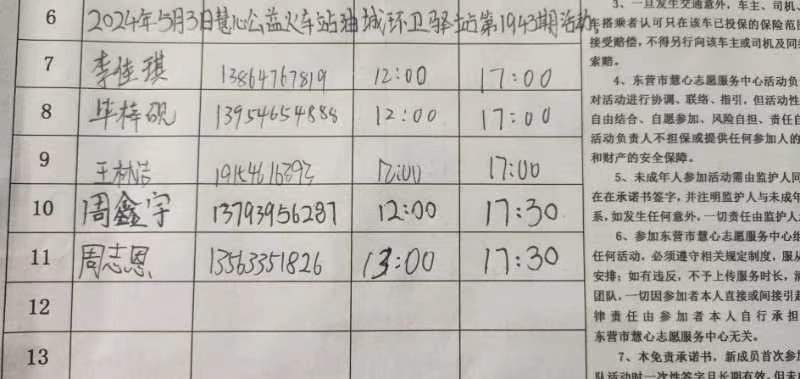 6 2024年5月3日慧心公益火车站油城环卫驿站第1943期活动
7 李佳琪 13864767819 12:00 17:00
8 毕梓砚 13954654888 12:00 17:00
9 王林洁 12:00 17:00
10 周鑫宇 13793956287 12:00 17:30
11 周志恩 13563351826 13:00 17:30
12
13
3、一旦发生交通意外，车主、司机、
车搭乘者认可只在该车已投保的保险范
接受赔偿，不得另行向该车主或司机及同
索赔。
4、东营市慧心志愿服务中心活动负
对活动进行协调、联络、指引，但活动性
自由结合、自愿参加、风险自担、责任自
活动负责人不担保或提供任何参加人的
和财产的安全保障。
5、未成年人参加活动需由监护人同
在在承诺书签字，并注明监护人与未成年
系，如发生任何意外，一切责任由监护人
6、参加东营市慧心志愿服务中心组
任何活动，必须遵守相关规定制度，服从
安排；如有违反，不予上传服务时长，清
团队，一切因参加者本人直接或间接引起
律责任由参加者本人自行承担
东营市慧心志愿服务中心无关。
7、本免责承诺书，新成员首次参加
队活动时一次性签字且长期有效，但未